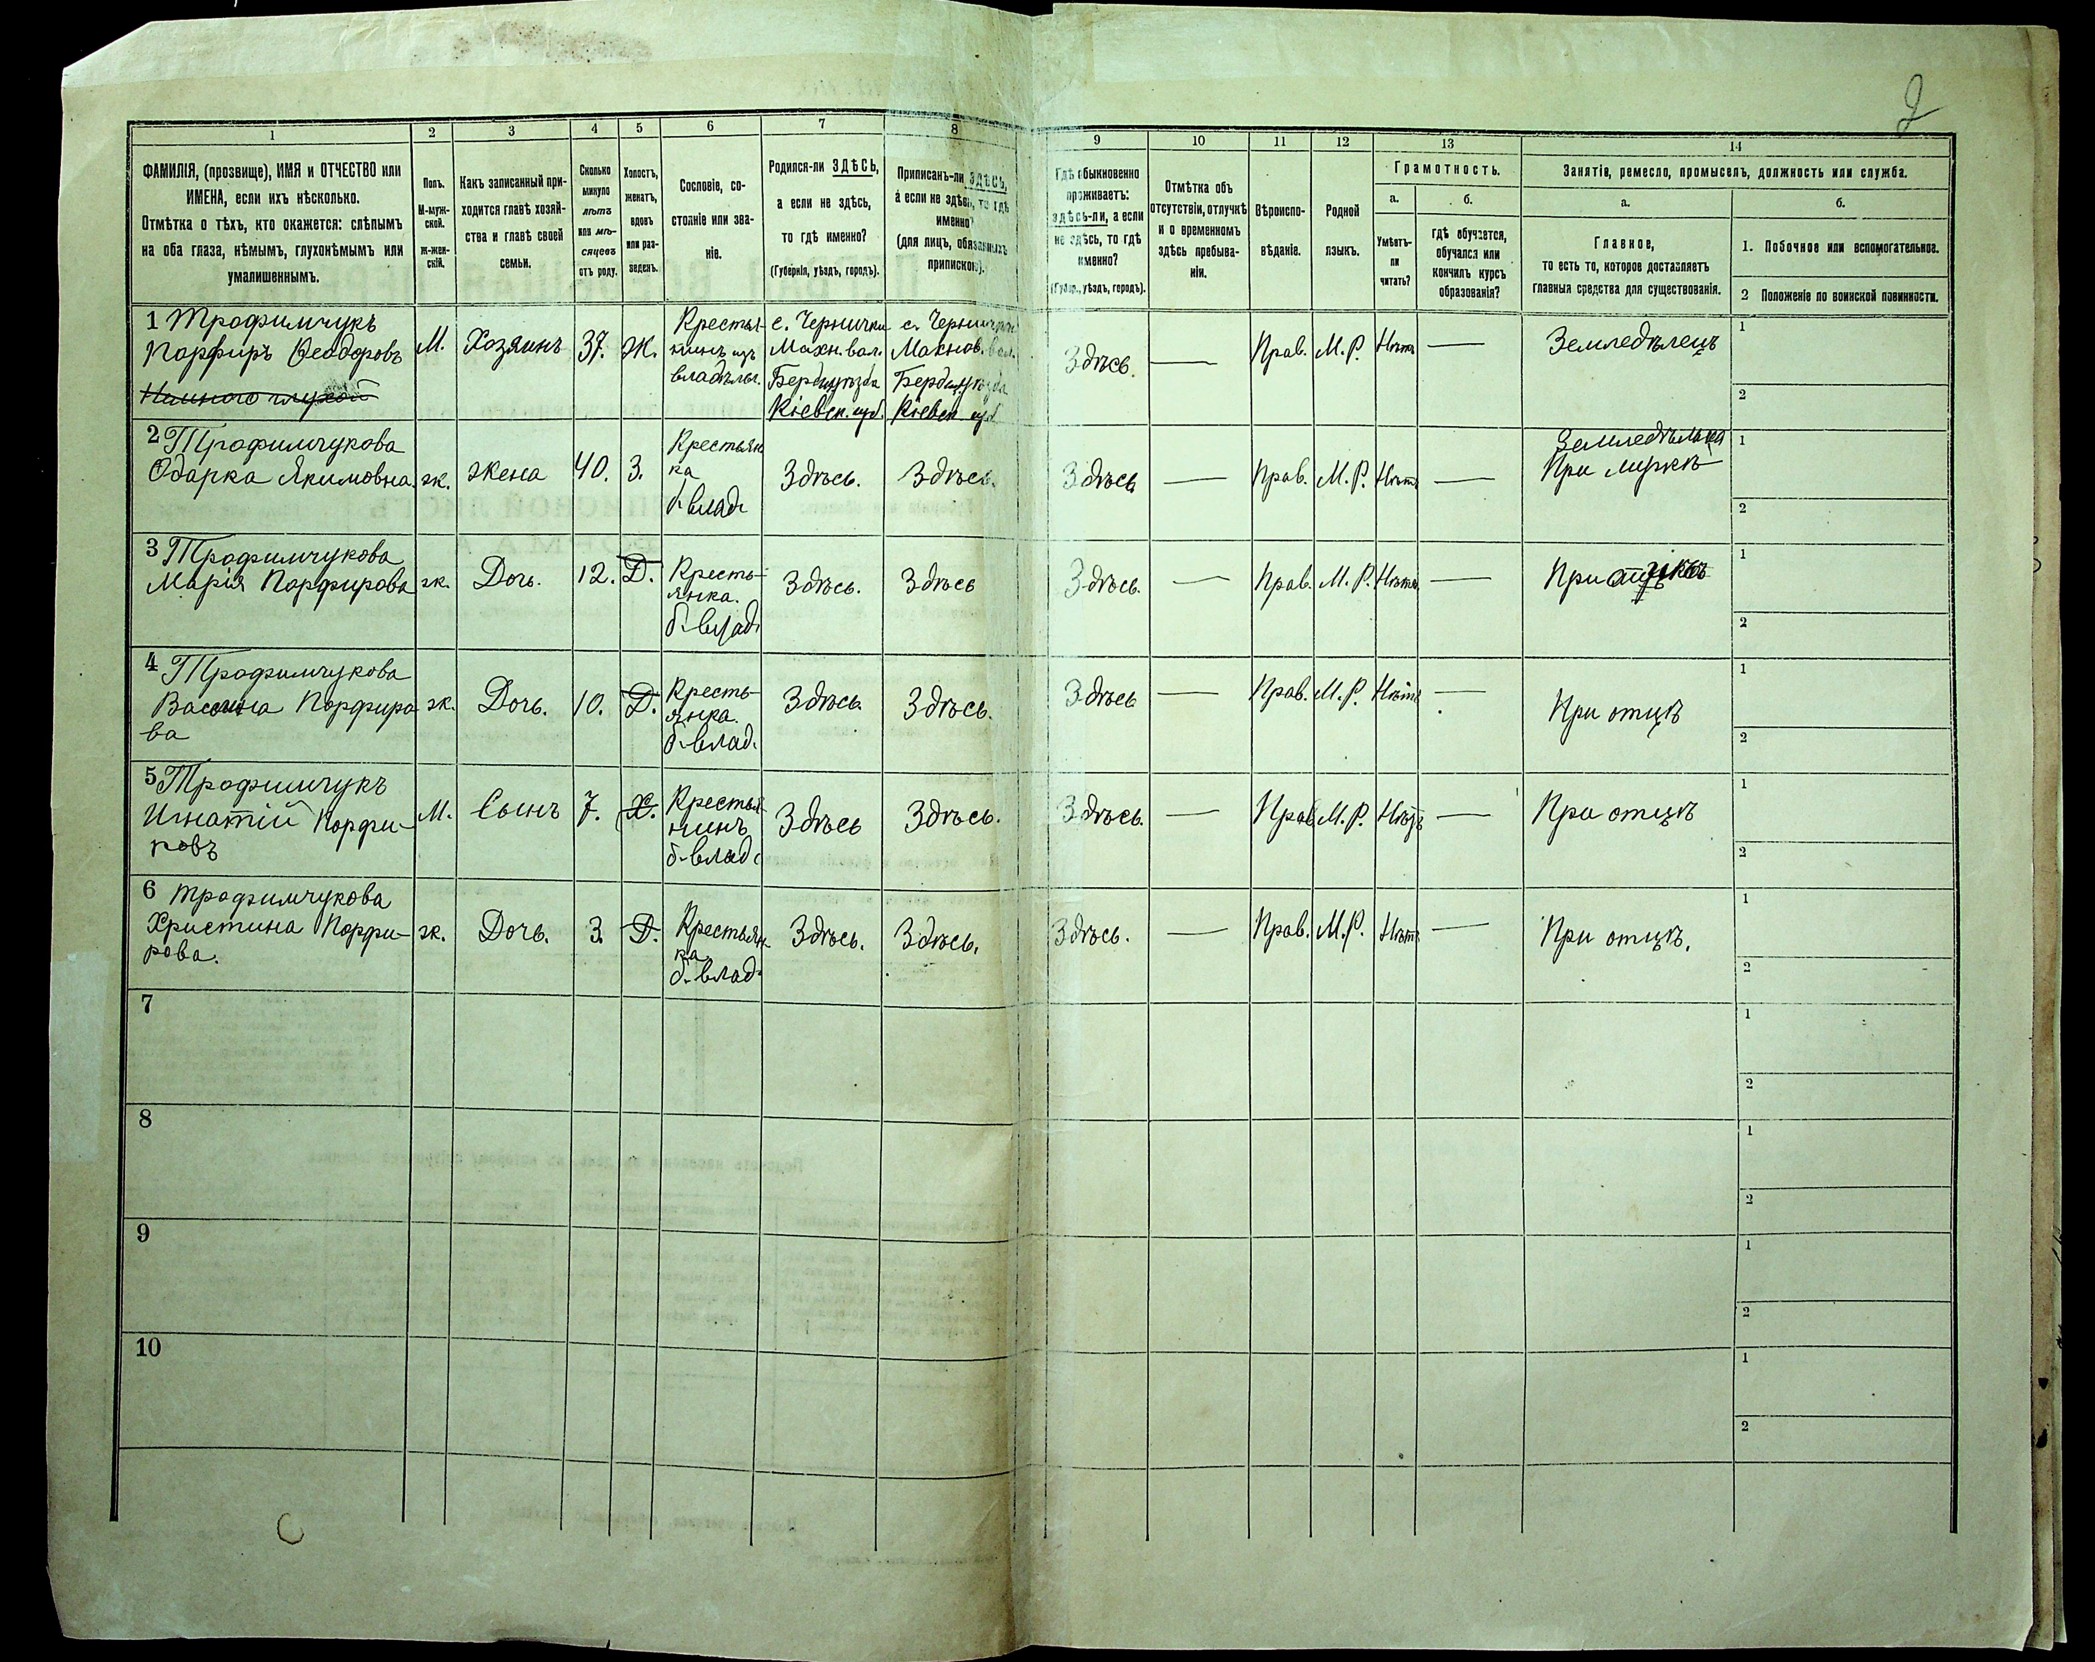 2
1
2
3
4
5
6
7
8
9
10
11
12
13
14
ФАМИЛІЯ, (прозвище), ИМЯ и ОТЧЕСТВО или
ИМЕНА, если ихъ нѣсколько.
Отмѣтка о тѣхъ, кто окажется: слѣпымъ
на оба глаза, нѣмымъ, глухонѣмымъ или
умалишеннымъ.
Полъ.
М-муж-
ской.
ж-жен-
скій.
Какъ записанный при-
ходится главѣ хозяй-
ства и главѣ своей
семьи.
Сколько
минуло
лѣтъ
или мѣ-
сяцевъ
отъ роду.
Холостъ,
женатъ,
вдовъ
или раз-
веденъ.
Сословіе, со-
стояніе или зва-
ніе.
Родился-ли ЗДѢСЬ,
а если не здѣсь,
то гдѣ именно?
(Губернія, уѣздъ, городъ).
Приписанъ-ли ЗДѢСЬ,
а если не здѣсь, то гдѣ
именно?
(для лицъ, обязанныхъ
припискою).
Гдѣ обыкновенно
проживаетъ:
здѣсь-ли, а если
не здѣсь, то гдѣ
именно?
(Губер., уѣздъ, городъ).
Отмѣтка объ
отсутствіи, отлучкѣ
и о временномъ
здѣсь пребыва-
ніи.
Вѣроиспо-
вѣданіе.
Родной
языкъ.
Грамотность.
а.
б.
Умѣетъ-
ли
читать?
гдѣ обучается,
обучался или
кончилъ курсъ
образованія?
Занятіе, ремесло, промыселъ, должность или служба.
а.
б.
Главное,
то есть то, которое доставляетъ
главныя средства для существованія.
1. Побочное или вспомогательное.
2 Положеніе по воинской повинности.
1 Трофимчукъ
Порфиръ Ѳеодоровъ
Немного глухой
М.
Хозяинъ
37.
Ж.
Крестья-
нинъ изъ
владѣльч.
с. Чернички
Махн. вол.
Берд. уѣзда
Кіевск. губ.
с. Чернички
Махнов. вол.
Берд. уѣзда
Кіевск губ
Здѣсь.
—
Прав.
М. Р.
Нѣтъ
—
Земледѣлецъ
1
2
2 Трофимчукова
Одарка Якимовна.
ж.
жена
40.
З.
Крестьян
ка
б. влад.
Здѣсь.
Здѣсь.
Здѣсь
—
Прав.
М. Р.
Нѣтъ
—
При мужѣ
1
2
3 Трофимчукова
Марія Порфирова
ж.
Дочь.
12.
Д.
Кресть-
янка.
б. влад.
Здѣсь.
Здѣсь
Здѣсь.
—
Прав.
М. Р.
Нѣтъ
—
При отцѣ
1
2
4 Трофимчукова
Порфиро
ва
ж.
Дочь.
10.
Д.
Кресть-
янка.
б. влад.
Здѣсь.
Здѣсь.
Здѣсь
—
Прав.
М. Р.
Нѣтъ
—
При отцѣ
1
2
5 Трофимчукъ
Игнатій Порфи-
ровъ
М.
Сынъ
7.
Х.
Крестья-
нинъ
б. влад.
Здѣсь
Здѣсь.
Здѣсь.
—
Прав.
М. Р.
Нѣтъ
—
При отцѣ
1
2
6 Трофимчукова
Христина Порфи-
рова.
ж.
Дочь.
3.
Д.
Крестьян-
ка
б. влад.
Здѣсь.
Здѣсь.
Здѣсь.
—
Прав.
М. Р.
Нѣтъ
—
При отцѣ.
1
2
7
1
2
8
1
2
9
1
2
10
1
2